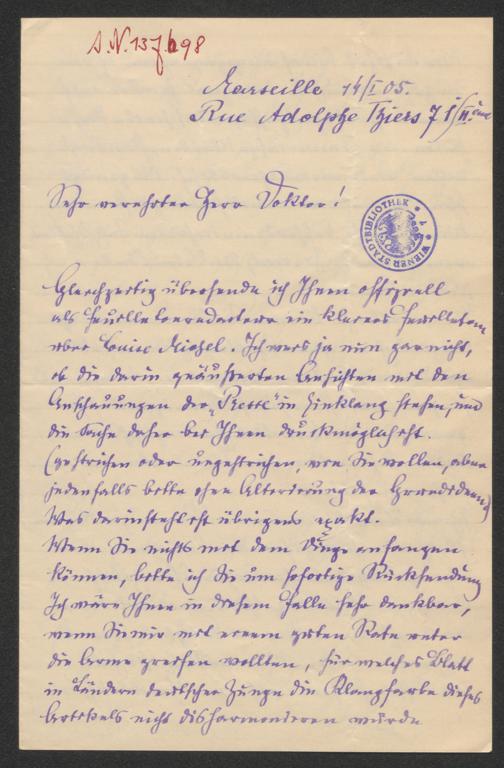 J.N. 137698
Marseille 14/I 05.
Rue Adolphe Thiers 7 II
Sehr verehrter Herr Doktor!
WIENER STADTBIBLIOTHEK
Gleichzeitig übersende ich Ihnen offiziell
als Feuilletonredakteur ein kleines Feuilleton
über Louise Michel. Ich weis ja nun gar nicht,
ob die darin geäußerten Ansichten mit den
Anschauungen der „Presse" in Einklang stehen, und
die Sache daher bei Ihnen druckmöglich ist.
Gestrichen oder ungestrichen, wie Sie wollen, aber
jedenfalls bitte ohne Alterierung der Grundideen
Was darinsteht ist übrigens exakt.
Wenn Sie nichts mit dem Dinge anfangen
können, bitte ich Sie um sofortige Rücksendung
Ich wäre Ihnen in diesem Falle sehr dankbar,
wenn Sie mir mit einem guten Rate unter
die Arme greifen wollten, für welches Blatt
in Ländern deutscher Zunge die Klangfarbe dieses
Artikels nicht disharmonieren würde